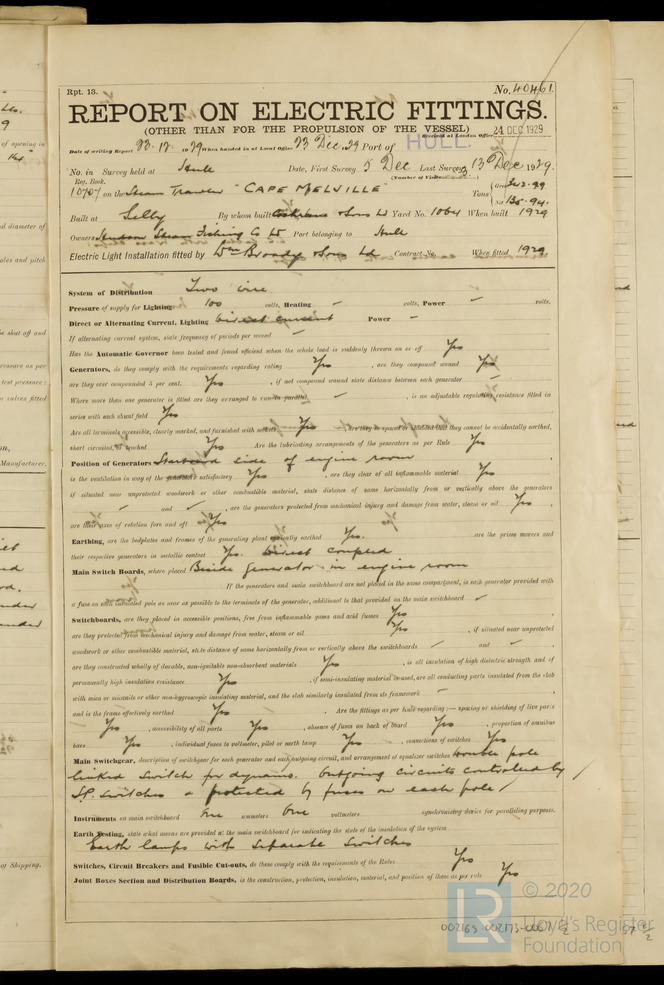 Rpt. 13. No. 40461.
REPORT ON ELECTRIC FITTINGS.
(OTHER THAN FOR THE PROPULSION OF THE VESSEL)
Received at London Office 24 DEC 1929
Date of writing Report 23.12.1929 When handed in at Local Office 23 Dec. 29 Port of HULL.
No. in Survey held at Hull Date, First Survey 5 Dec Last Survey 13 Dec 1929.
Reg. Book. (Number of Visits 3.
on the Steam Trawler "CAPE MELVILLE" Tons
Built at Selby By whom built Cochrane & Sons Ld Yard No. 1064 When built 1929
Owners Hudson Steam Fishing Co Ld Port belonging to Hull
Electric Light Installation fitted by Wm Broady & Sons Ld Contract No. When fitted 1929
System of Distribution Two wire
Pressure of supply for Lighting 100 volts, Heating – volts, Power – volts.
Direct or Alternating Current, Lighting Direct current Power –
If alternating current system, state frequency of periods per second –
Has the Automatic Governor been tested and found efficient when the whole load is suddenly thrown on or off Yes
Generators, do they comply with the requirements regarding rating Yes , are they compound wound Yes
are they over compounded 5 per cent. Yes , if not compound wound state distance between each generator –
Where more than one generator is fitted are they arranged to run in parallel – , is an adjustable regulating resistance fitted in
series with each shunt field Yes
Are all terminals accessible, clearly marked, and furnished with sockets Yes Are they so spaced or shielded that they cannot be accidentally earthed,
short circuited, or touched Yes Are the lubricating arrangements of the generators as per Rule Yes
Position of Generators Starboard side of engine room
is the ventilation in way of the generators satisfactory Yes , are they clear of all inflammable material Yes
if situated near unprotected woodwork or other combustible material, state distance of same horizontally from or vertically above the generators
✓ and ✓ , are the generators protected from mechanical injury and damage from water, steam or oil Yes
are their axes of rotation fore and aft Yes
Earthing, are the bedplates and frames of the generating plant efficiently earthed Yes. are the prime movers and
their respective generators in metallic contact Yes. Direct coupled
Main Switch Boards, where placed Beside generator in engine room
If the generators and main switchboard are not placed in the same compartment, is each generator provided with
a fuse on each insulated pole as near as possible to the terminals of the generator, additional to that provided on the main switchboard ✓
Switchboards, are they placed in accessible positions, free from inflammable gases and acid fumes Yes
are they protected from mechanical injury and damage from water, steam or oil Yes , if situated near unprotected
woodwork or other combustible material, state distance of same horizontally from or vertically above the switchboards – and –
are they constructed wholly of durable, non-ignitable non-absorbent materials Yes , is all insulation of high dielectric strength and of
permanently high insulation resistance Yes , if semi-insulating material is used, are all conducting parts insulated from the slab
with mica or micanite or other non-hygroscopic insulating material, and the slab similarly insulated from its framework –
and is the frame effectively earthed Yes Are the fittings as per Rule regarding :— spacing or shielding of live parts
Yes , accessibility of all parts Yes , absence of fuses on back of board Yes , proportion of omnibus
bars Yes , individual fuses to voltmeter, pilot or earth lamp Yes , connections of switches Yes
Main Switchgear, description of switchgear for each generator and each outgoing circuit, and arrangement of equalizer switches Double pole
linked switch for dynamo. Outgoing circuits controlled by
S.P. switches & protected by fuses on each pole
Instruments on main switchboard One ammeters One voltmeters synchronizing device for paralleling purposes.
Earth Testing, state what means are provided at the main switchboard for indicating the state of the insulation of the system
Earth lamps with separate switches
Switches, Circuit Breakers and Fusible Cut-outs, do these comply with the requirements of the Rules Yes
Joint Boxes Section and Distribution Boards, is the construction, protection, insulation, material, and position of these as per rule Yes
LR © 2020
Lloyd's Register
Foundation
of opening in
diameter of
and pitch
be shut off and
pressure as per
test pressure:
valves fitted
Manufacturer.
of Shipping.